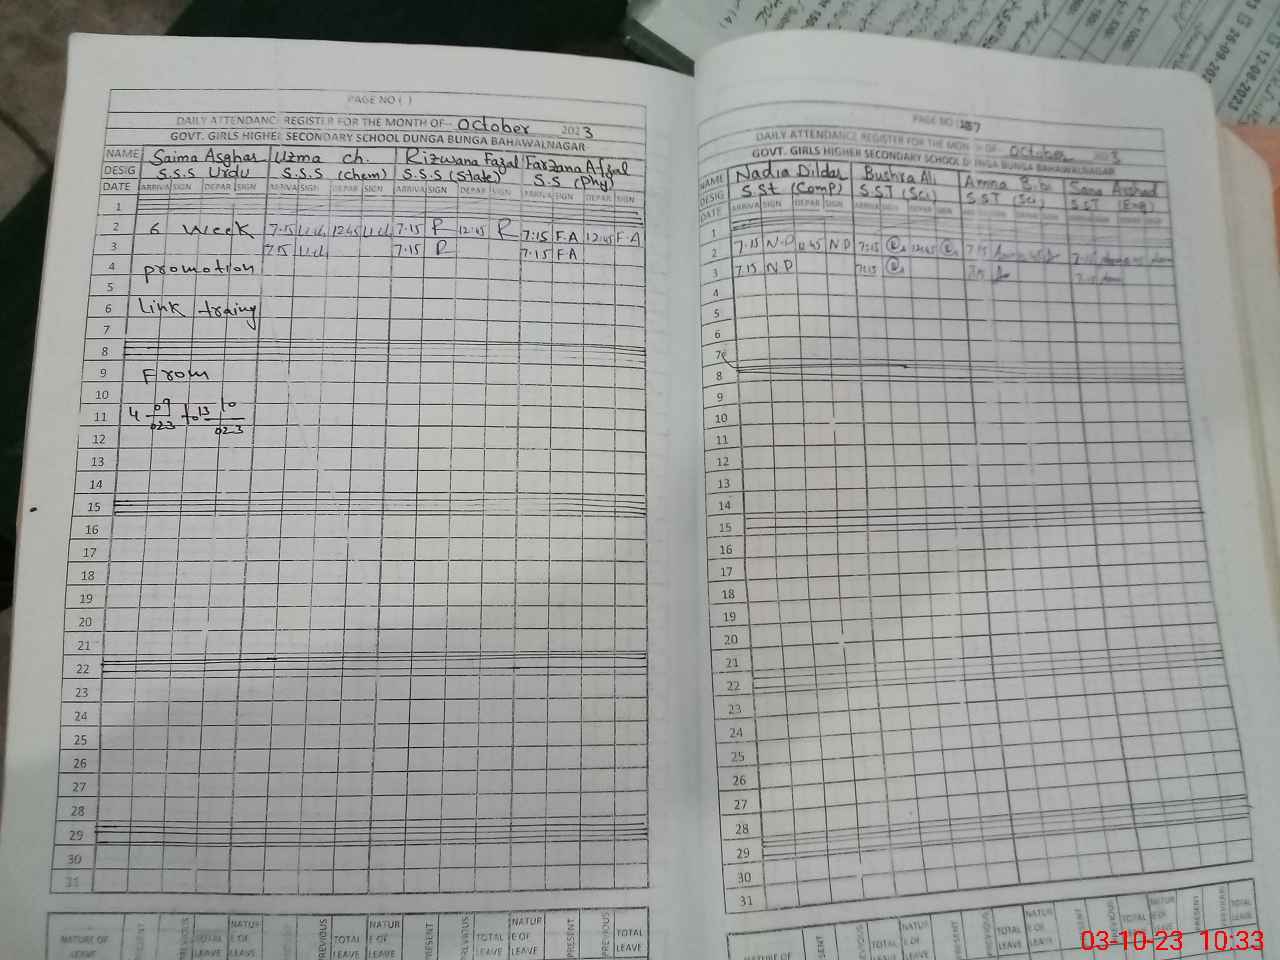 PAGE NO ( )
DAILY ATTENDANC REGISTER FOR THE MONTH OF October 2023
GOVT. GIRLS HIGHER SECONDARY SCHOOL DUNGA BUNGA BAHAWALNAGAR
NAME Saima Asghar Uzma ch. Rizwana Fazal Farzana Afzal
DESIG S.S.S Urdu S.S.S (chem) S.S.S (State) S.S (Phy)
DATE ARRIVA SIGN DEPAR SIGN ARRIVA SIGN DEPAR SIGN ARRIVA SIGN DEPAR SIGN ARRIVA SIGN DEPAR SIGN
1
2 6 Week 7.15 U.ch 12.45 U.ch 7.15 R 12.45 R 7:15 F.A 12:45 F.A
3 7.15 U.ch 7.15 R 7.15 FA
4 promotion
5
6 Link traing
7
8
9 From
10
11 4 09 023 to 13 10 023
12
13
14
15
16
17
18
19
20
21
22
23
24
25
26
27
28
29
30
31
NATURE OF PRESENT PREVIOUS TOTAL LEAVE NATUR E OF LEAVE PRESENT PREVIOUS TOTAL LEAVE NATUR E OF LEAVE PRESENT PREVIOUS TOTAL LEAVE NATUR E OF LEAVE PRESENT PREVIOUS TOTAL LEAVE
PAGE NO 
DAILY ATTENDANCE REGISTER FOR THE MONTH OF October 2023
GOVT. GIRLS HIGHER SECONDARY SCHOOL DUNGA BUNGA BAHAWALNAGAR
NAME Nadia Dildar Bushra Ali Amna Bibi Sana Arshad
DESIG S.St (Comp) S.ST (Sci) S.ST (Sci) S.ST (Eng)
DATE ARRIVA SIGN DEPAR SIGN ARRIVA SIGN
1
2 7.15 N.D 12.45 N D 7:15 12:45 7.15
3 7.15 N D 7:15 7.15
4
5
6
7
8
9
10
11
12
13
14
15
16
17
18
19
20
21
22
23
24
25
26
27
28
29
30
31
NATURE OF PRESENT PREVIOUS TOTAL LEAVE NATUR E OF LEAVE PRESENT PREVIOUS TOTAL LEAVE NATUR E OF LEAVE PRESENT PREVIOUS TOTAL LEAVE NATUR E OF LEAVE PRESENT PREVIOUS TOTAL LEAVE
26-09-202
12-08-2023
03-10-23 10:33